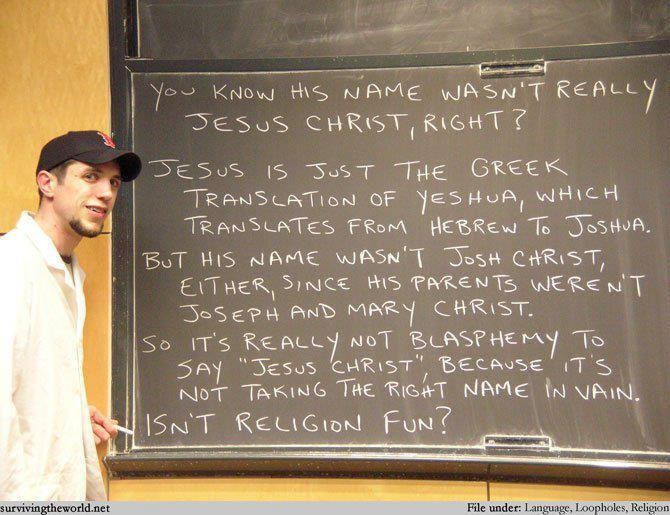 YOU KNOW HIS NAME WASN'T REALLY
JESUS CHRIST, RIGHT?
JESUS IS JUST THE GREEK
TRANSLATION OF YESHUA, WHICH
TRANSLATES FROM HEBREW TO JOSHUA.
BUT HIS NAME WASN'T JOSH CHRIST,
EITHER, SINCE HIS PARENTS WEREN'T
JOSEPH AND MARY CHRIST.
SO IT'S REALLY NOT BLASPHEMY TO
SAY "JESUS CHRIST", BECAUSE IT'S
NOT TAKING THE RIGHT NAME IN VAIN.
ISN'T RELIGION FUN?
survivingtheworld.net
File under: Language, Loopholes, Religion